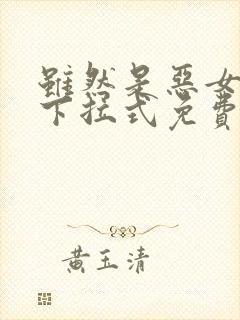 雖然是惡女
下拉式免費
黃玉清